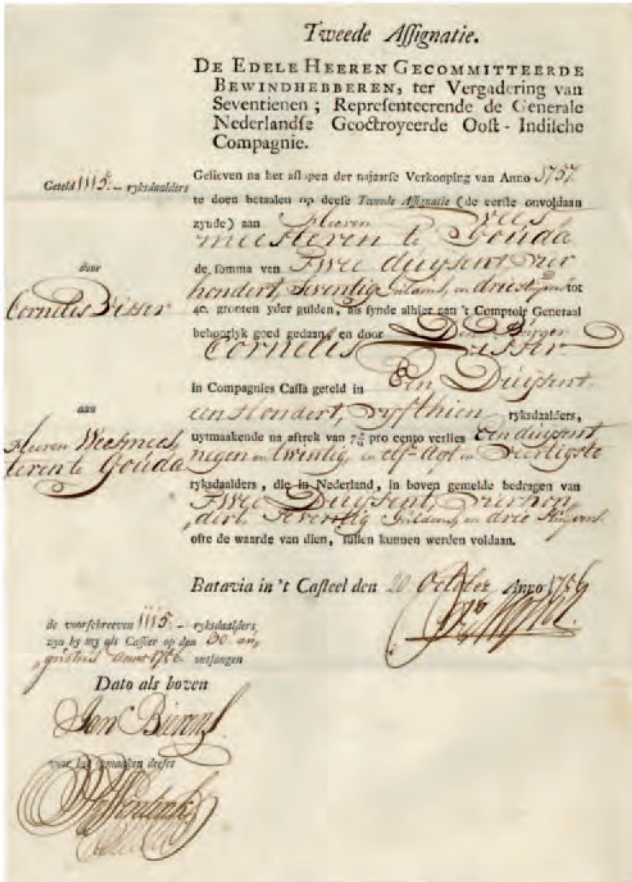 Tweede Assignatie.
DE EDELE HEEREN GECOMMITTEERDE
BEWINDHEBBEREN, ter Vergadering van
Seventienen ; Representeerende de Generale
Nederlandse Geoctroyeerde Oost-Indische
Compagnie.
Geteld 1115.- ryksdaalders
Gelieven na het aflopen der najaarse Verkooping van Anno 1757
te doen betaalen op deese Tweede Assignatie (de eerste onvoldaan
zynde) aan Heeren Wees
meesteren te Gouda
de somma van Twee duysent vier
hondert, Seventig Guldens, en drie stuyvers tot
40. grooten yder gulden, als synde alhier aan 't Comptoir Generaal
behoorlyk goed gedaan, en door Den Burger
Cornelis Visser
in Compagnies Cassa geteld in Een Duysent,
een Hondert, vyfthien ryksdaalders,
uytmaakende na aftrek van pro cento verlies Een duysent
negen en twintig, en elf Agt en Veertigste
ryksdaalders, die in Nederland, in boven gemelde bedragen van
Twee Duysent, vierhon
dert, Seventig Guldens, en drie Stuyvers
ofte de waarde van dien, sullen kunnen werden voldaan.
door
Cornelis Visser
aan
Heeren Weesmees
teren te Gouda
Batavia in 't Casteel den 20 October Anno 1756
de voorschreeven 1115.- ryksdaalders,
zyn by my als Cassier op den 30 au
gustus anno 1756 ontfangen
Dato als boven
Jan Bierens
voor het maaken deeser